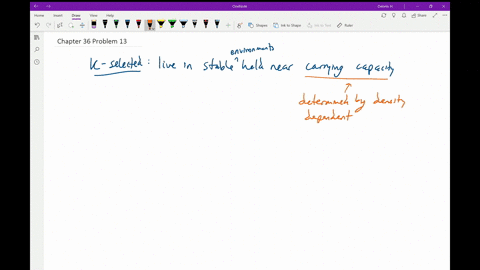 OneNote
Dennis H
File Home Insert Draw View Help
Shapes Ink to Shape Ink to Math Replay
Chapter 36 Problem 13
environments
K-selected: live in stable ^ held near carrying capacity
determined by density
dependent